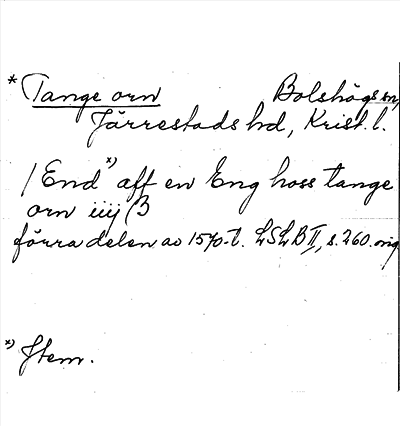 * Tange orn Bolshögs sn,
Järrestads hd, Krist. l.
/ End *) aff en Eng hoss tange
orn iiij β
förra delen av 1570-t. LSLB II, s. 260. orig
*) Item.